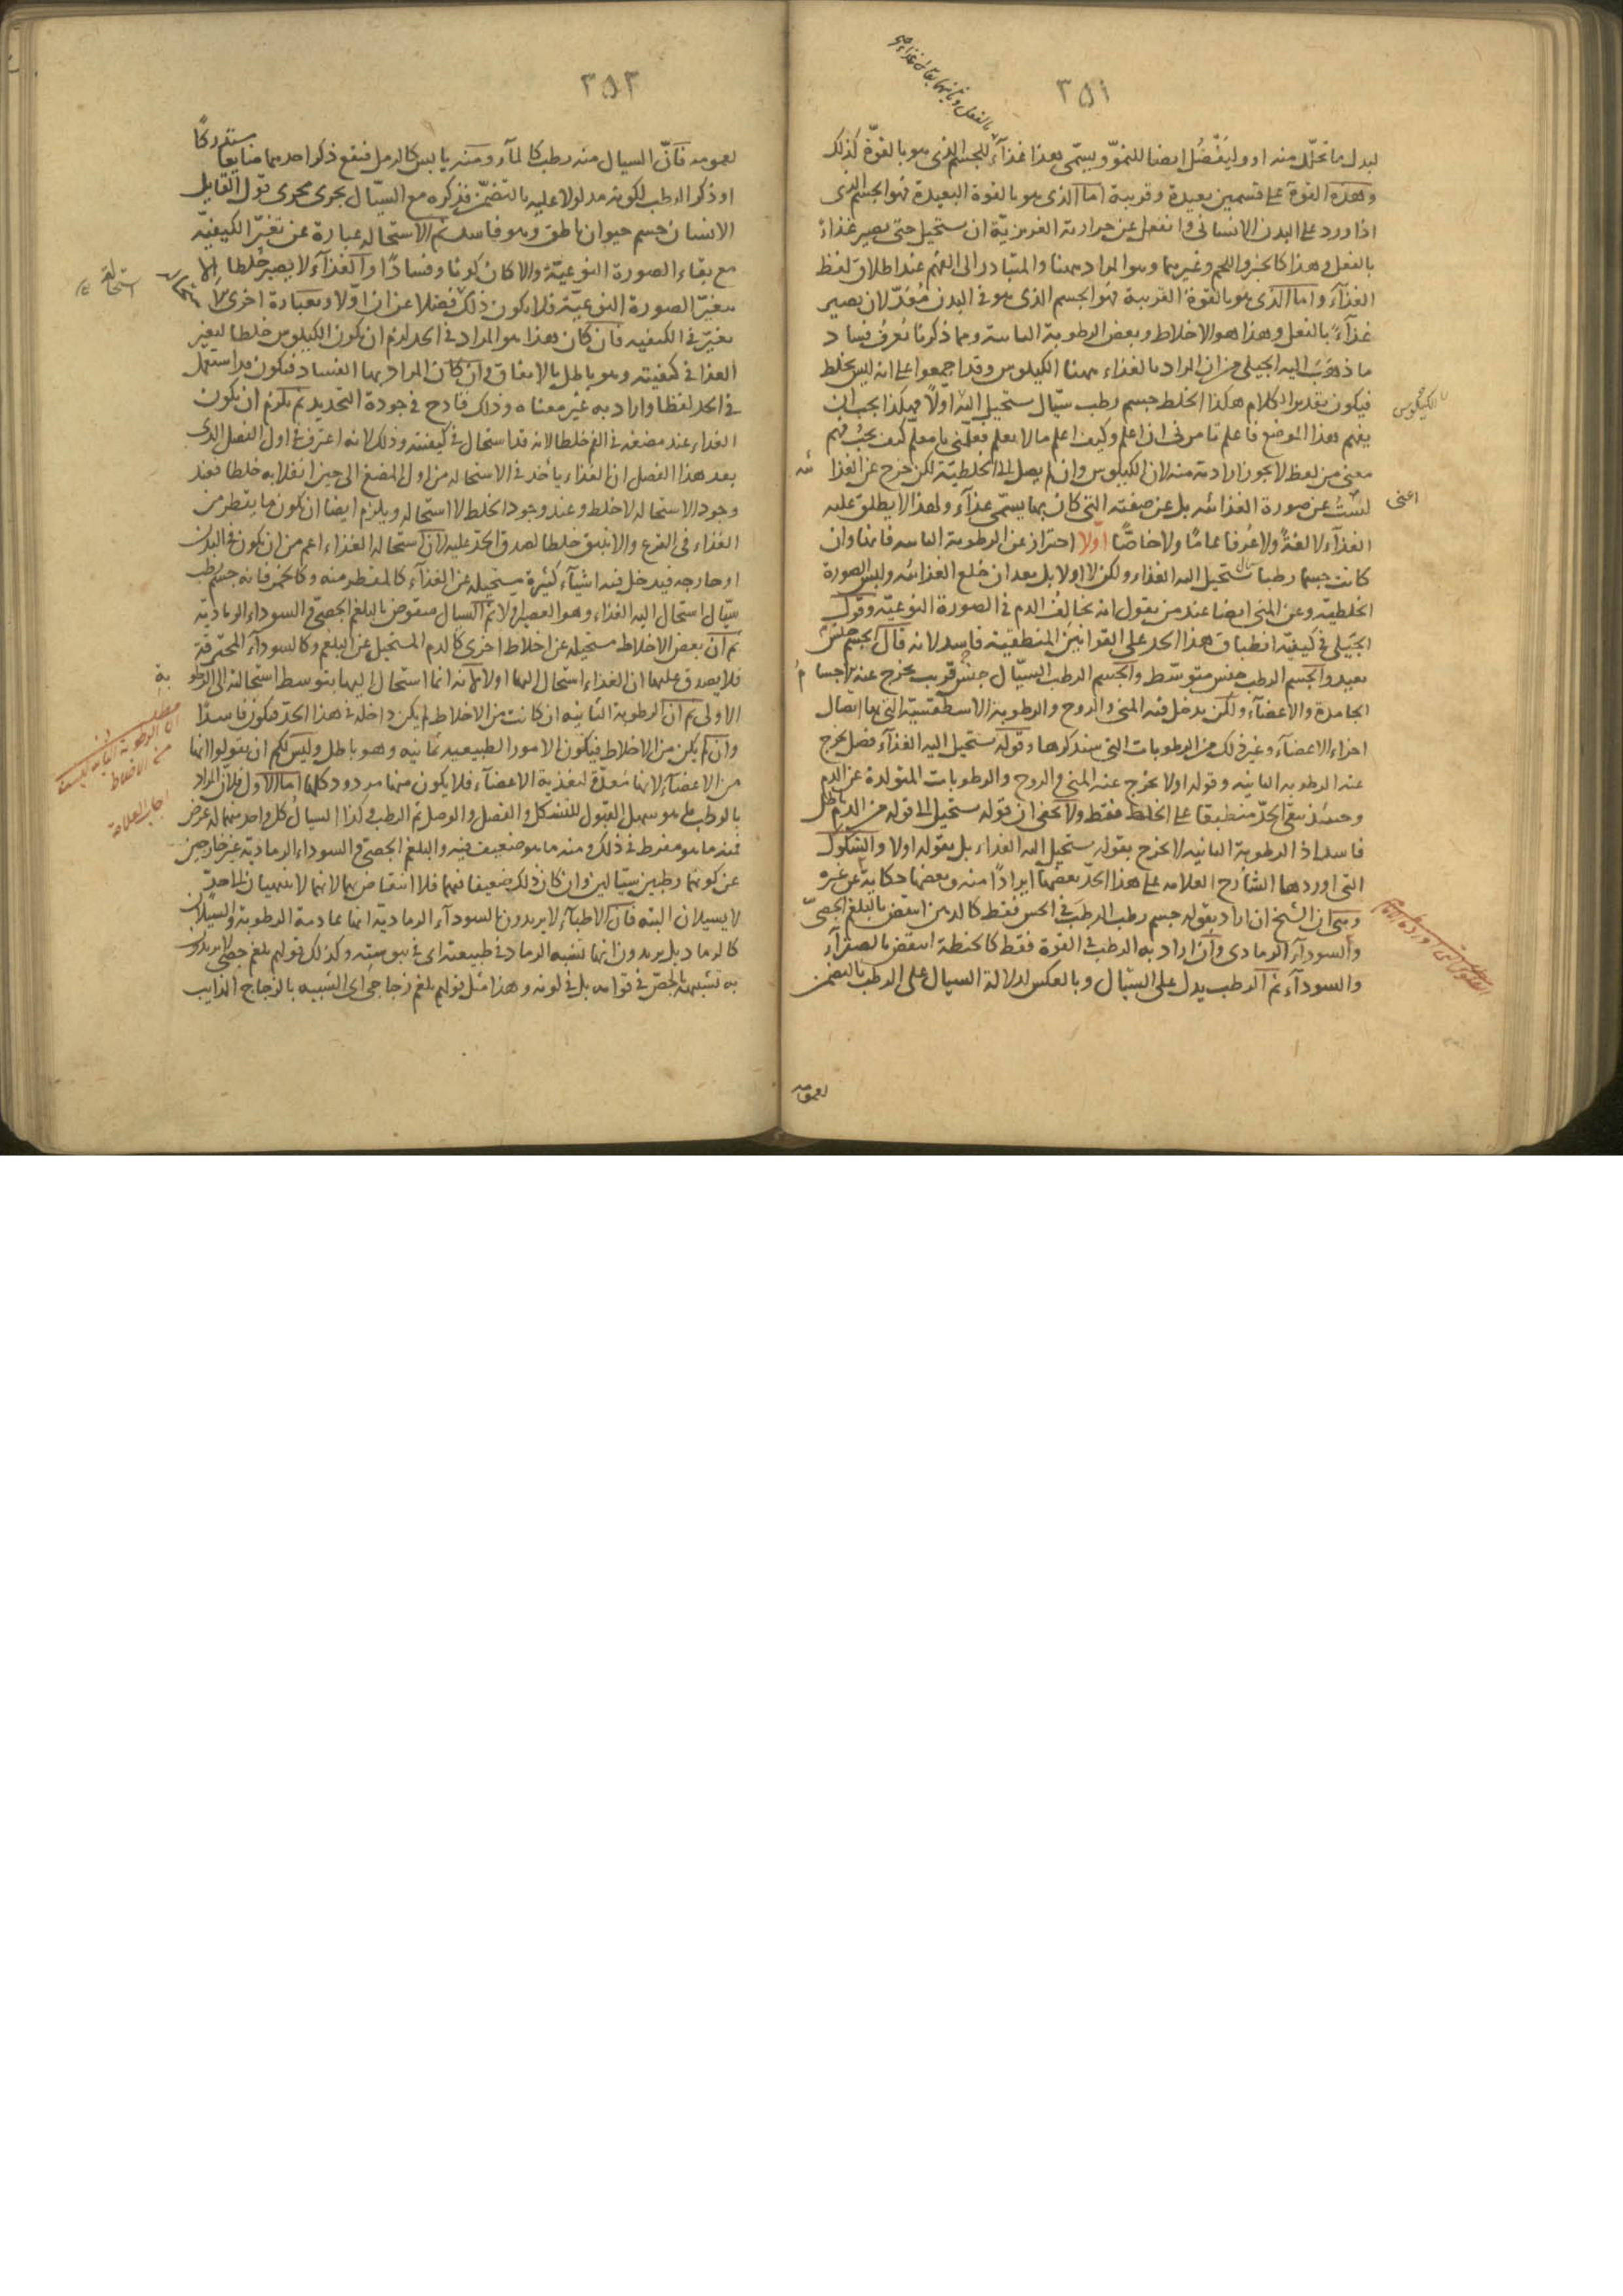 ٣٥١
لبدل ما تحلل منه اولا وليفضل ايضا للنمو ويسمى هذا غذاء للجسم الذى هو بالقوة كذلك
وهذه القوة على قسمين بعيدة وقريبة اما الذى هو بالقوة البعيدة فهو الجسم الذى
اذا ورد على البدن الانسانى وانفعل عن حرارته الغريزية ان يستحيل حتى يصير غذاء
بالفعل وهذا كالخبز واللحم وغيرهما وهو المراد ههنا والمتبادر الى الفهم عند اطلاق لفظ
الغذاء واما الذى هو بالقوة القريبة فهو الجسم الذى هو فى البدن مُعَدّ لان يصير
غذاء بالفعل وهذا هو الاخلاط وبعض الرطوبة الثانية ومما ذكرنا يُعرف فساد
ما ذهب اليه الجيلى من ان المراد بالغذاء ههنا الكيلوس وقد اجمعوا على انه ليس بخلط
فيكون تقدير الكلام هكذا الخلط جسم رطب سيّال يستحيل اليه اولا فهكذا يجب ان
يفهم هذا الموضع فاعلم تامرنى ان اعلم وكيف اعلم ما لا يعلم فعلّمنى يا معلّم كيف يجب فهم
معنى من لفظ لا يجوز ارادته منه لان الكيلوس وان لم يصل الى الخلطيّة لكن خرج عن الغذائية
لستُ عن صورة الغذائيه بل عن صفته التى كان بها يسمّى غذاء ولهذا لا يطلق عليه
الغذاء لا لغةً ولا عُرفا عامّا ولا خاصّا اولا احتراز عن الرطوبة الثانيه فانها وان
كانت جسما رطبا سيال يستحيل اليه الغذاء ولكن لا اولا بل بعد ان خلع الغذائيه ولبس الصورة
الخلطيّة وعن المنى ايضا عند من يقول انه يخالف الدم فى الصورة النوعيّة وقول
الجيلى فى كيفيّة انطباق هذا الحد على القوانين المنطقية فاسد لانه قال الجسم جنس
بعيد والجسم الرطب جنس متوسّط والجسم الرطب السيّال جنس قريب يخرج عنه الاجسام
الجامدة والاعضاء ولكن يدخل فيه المنى والروح والرطوبة الاسطقسيّة التى بها اتصال
اجزاء الاعضاء وغير ذلك من الرطوبات التى سنذكرها وقوله يستحيل اليه الغذاء فصل يخرج
عنه الرطوبه الثانيه وقوله اولا يخرج عنه المنى والروح والرطوبات المتولدة عن الدم
وحينئذ يبقى الحدّ منطبقا على الخلط فقط ولا يخفى ان قوله يستحيل الى قوله من الدم باطل
فاسد اذ الرطوبة الثانيه لا يخرج بقوله يستحيل اليه الغذاء بل بقوله اولا والشكوك
التى اوردها الشارح العلامه على هذا الحدّ بعضها ايرادًا منه وبعضها حكاية عن غيره
وهى ان الشيخ ان اراد بقوله جسم رطب الرطب فى الحس فقط كالدهن انتقض بالبلغم الجصّى
والسوداء الرمادى وان اراد به الرطب فى القوة فقط كالحنطة انتقض بالصفراء
والسوداء ثم الرطب يدل على السيّال وبالعكس لدلالة السيال على الرطب بالتضمن
لعمومه
بالكيلوس
اعنى
٣٥٢
لعمومه فانّ السيال منه رطب كالماء ومنه يابس كالرمل فيقع ذكر احدهما ضايعا مستدركا
او ذكر الرطب لكونه مدلولا عليه بالتضمّن فذكره مع السيّال يجرى مجرى قول القايل
الانسان جسم حيوان ناطق وهو فاسد ثم الاستحاله عبارة عن تغيّر الكيفيّه
مع بقاء الصورة النوعيّة والا كان كونا وفسادًا والغذاء لا يصير خلطا الا
بتغيّر الصورة النوعيّة فلا يكون ذلك فضلا عن ان اوّلا وبعبارة اخرى
تغيّر فى الكيفيه فان كان هذا هو المراد فى الحد لزم ان يكون الكيلوس خلطا لتغير
الغذا فى كيفيته وهو باطل بالاتفاق وان كان المراد بها الفساد فيكون قد استعمل
فى الحد لفظا واراد به غير معناه وذلك قادح فى جودة التحديد ثم يلزم ان يكون
الغذاء عند مضغه فى الفم خلطا لانه قد استحال فى كيفيته وذلك لانه اعترف فى اول الفصل الذى
بعد هذا الفصل ان الغذاء ياخذ فى الاستحاله من اول المضغ الى حين انقلابه خلطا فعند
وجود الاستحاله لا خلط وعند وجود الخلط لا استحاله ويلزم ايضا ان يكون ما يتقطر من
الغذاء فى القرع والانبيق خلطا لصدق الحدّ عليه لان استحاله الغذاء اعم من ان يكون فى البدن
او خارجه فيدخل فيه اشياء كثيرة مستحيله عن الغذاء كالمقطر منه وكالخمر فانه جسم رطب
سيّال استحال اليه الغذاء وهو العصير اولا ثم السيال منقوض بالبلغم الجصّى والسوداء الرماديّه
ثم ان بعض الاخلاط مستحيله عن اخلاط اخرى كالدم المستحيل عن البلغم وكالسوداء المحترقة
فلا يصدق عليها ان الغذاء استحال اليها اولا لانه انما استحال اليها بتوسط استحالته الى الرطوبة
الاولى ثم ان الرطوبة الثانيه ان كانت من الاخلاط لم يكن داخله فى هذا الحدّ فيكون فاسدًا
وان لم يكن من الاخلاط فيكون الامور الطبيعيه ثمانيه وهو باطل وليس لكم ان تقولوا انها
من الاعضاء لانها مُعدّة لتغذية الاعضاء فلا يكون منها مردود كلها اما الاول فلان المراد
بالرطب على هو سهل القبول للتشكل والفصل والوصل ثم الرطب وكذا السيال كل واحد منهما له عرض
فمنه ما هو مفرط فى ذلك ومنه ما هو ضعيف فيه والبلغم الجصّى والسوداء الرماديّة غير خارجين
عن كونهما رطبين سيّالين وان كان ذلك ضعيفا فيهما فلا انتقاض بهما لانهما لا ينتهيان الى حدّ
لا يسيلان البته فان الاطباء لا يريدون بالسوداء الرماديّة انها عادمة الرطوبة والسيلان
كالرماد بل يريدون انها تشبه الرماد فى طبيعته اى فى يبوسته وكذلك قولهم بلغم جصّى لا يريدون
به تشبيهه بالجصّ فى قوامه بل فى لونه وهذا مثل قولهم بلغم زجاجى اى الشبيه بالزجاج الذايب
استحالة
اجاب العلامة